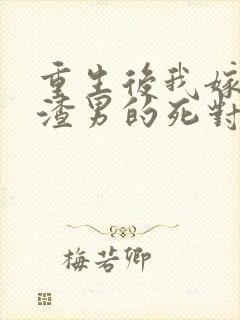 重生後我嫁
渣男的死對
梅若卿